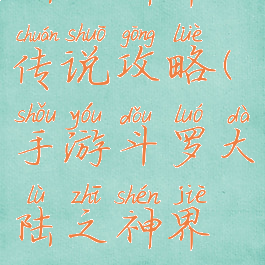 chuán shuō gōng lüè
传说攻略(
shǒu yóu dòu luó dà
手游斗罗大
lù zhī shén jiè
陆之神界